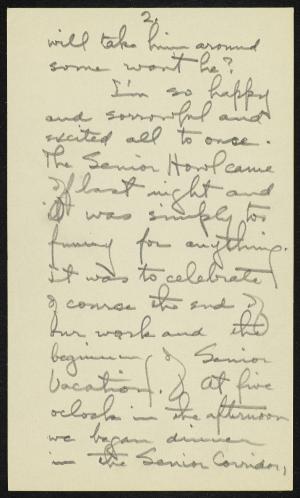 2.
will take him around
some wont he?
I'm so happy
and sorrowful and
excited all to once.
The Senior Howl came
off last night and
it was simply too
funny for anything.
it was to celebrate
of course the end of
our work and the
beginning of Senior
Vacation. At five
oclock in the afternoon
we began dinner
in the Senior Corridor,